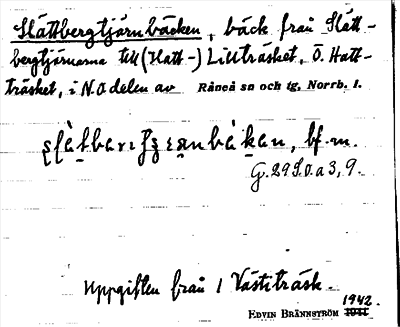 Slättbergtjärnbäcken, bäck från Slätt-
bergtjärnarna till (Hatt-) Lillträsket, Ö. Hatt-
träsket, i N.O delen av Råneå sn och tg. Norrb. l.
bf. m.
G. 29 S.O. a 3, 9.
Uppgiften från 1 Västiträsk.
1942.
EDVIN BRÄNNSTRÖM 1941